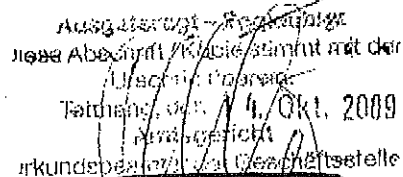 Ausgefertigt – Beglaubigt
Diese Abschrift / Kopie stimmt mit der
Urschrift überein.
Tettnang, den 14. Okt. 2009
Amtsgericht
Urkundsbeamter der Geschäftsstelle